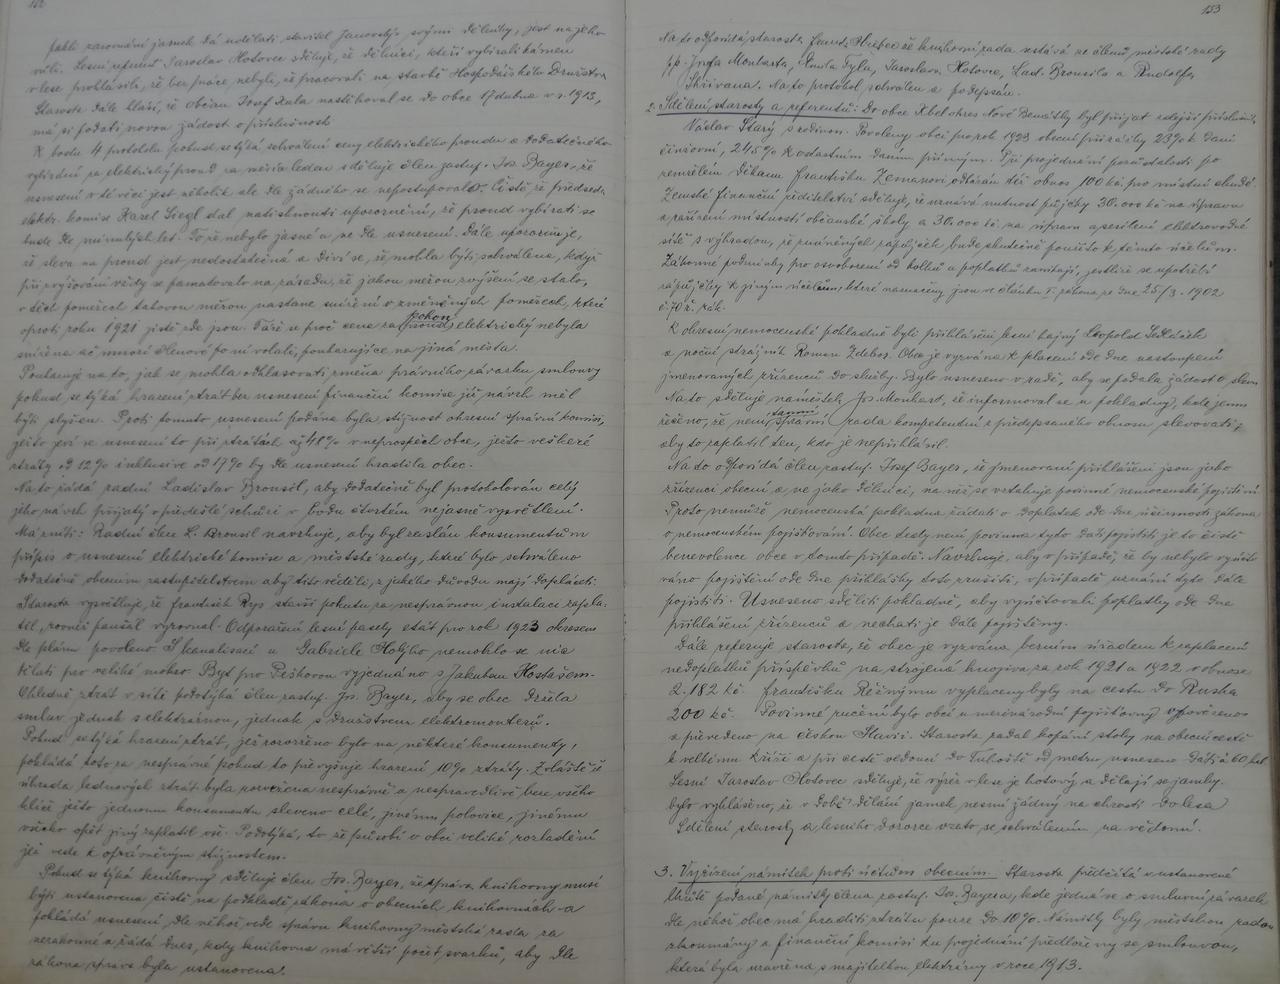 152
jakli zarovnání jamek dá udělati stavitel Janovský svými dělníky, jest na jeho
vůli. Lesní referent Jaroslav Hotovec sděluje, že dělníci, kteří vybírali kámen
v lese prohlásili, že bez práce nebyli, že pracovali na stavbě Hospodářského Družstva
Starosta dále hlásí, že občan Josef Kula nastěhoval se do obce 17 dubna v r. 1913,
má si podati novou žádost o příslušnost
K bodu 4 protokolu pokud se týká schválení ceny elektrického proudu a dodatečného
vybírání za elektrický proud za měsíc leden sděluje člen zastup. Jos. Bayer, že
usnesení v té věci jest několik ale dle žádného se nepostupovalo. Čistě že předseda
elektr. komise Karel Siegl dal natisknouti upozornění, že proud vybírati se
bude dle minulých let. To že nebylo jasné a ne dle usnesení. Dále upozorňuje,
že sleva na proud jest nedostatečná a diví se, že mohla býti schválena, když
při zvyšování vždy se pamatovalo na zásadu, že jakou měrou zvýšení se stalo,
v těch poměrech takovou měrou nastane snížení o změněných poměrech, které
oproti roku 1921 jistě zde jsou. Táže se proč cena za pohon elektrický nebyla
snížena ač mnozí členové po ní volali, poukazujíce na jiná města.
Poukazuje na to, jak se mohla odhlasovati změna právního závazku smlouvy
pokud se týká hrazení ztrát bez usnesení finanční komise jejíž návrh měl
býti slyšen. Proti tomuto usnesení podána byla stížnost okresní správní komisi,
ježto jeví se usnesení to při ztrátách až 41% v neprospěch obce, ježto veškeré
ztráty od 12% inklusive od 17% by dle usnesení hradila obec.
Na to žádá radní Ladislav Bronsil, aby dodatečně byl protokolován celý
jeho návrh přijatý v předešlé schůzi v bodu čtvrtém nejasné vysvětlení.
Má zníti: Radní člen L. Bronsil navrhuje, aby byl zaslán konsumentům
přípis o usnesení elektrické komise a městské rady, které bylo schváleno
dodatečně obecním zastupitelstvem aby tito věděli, z jakého důvodu mají doplácet.
Starosta vysvětluje, že František Rys starší pokutu za nesprávnou instalaci zapla-
til, rovněž paušál vyrovnal. Odporažení lesní paseky etát pro rok 1923 okresem
dle plánu povoleno. S kanalisací u Gabriele Holého nemohlo se nic
dělati pro veliké mokro. Byt pro Peškovou vyjednáno s Jakubem Hostašem.
Ohledně ztrát v síti podotýká člen zastup. Jos. Bayer, aby se obec držela
smluv jednak s elektrárnou, jednak s Družstvem elektromontérů.
Pokud se týká hrazení ztrát, jež rozvrženo bylo na některé konsumenty,
pokládá toto za nesprávné pokud to převyšuje hrazení 10% ztráty. Zvláště že
úhrada lednových ztrát byla rozvržena nesprávně a nespravedlivě beze všeho
klíče ježto jednomu konsumentu sleveno celé, jinému polovice, jinému
všecko opět jiný zaplatil vše. Podotýká, to že působí v obci veliké rozladění
jež vede k oprávněným stížnostem.
Pokud se týká knihovny sděluje člen Jos. Bayer, že správa knihovny musí
býti ustanovena čistě na podkladě zákona o obecních knihovnách a
pokládá usnesení, dle něhož vede správu knihovny městská rada za
nezákonné a žádá dnes, kdy knihovna má větší počet svazků, aby dle
zákona správa byla ustanovena.
153
Na to odpovídá starosta, Frant. Hrefec že knihovní rada sestává ze členů městské rady
pp. Josefa Monharta, Emila Tyla, Jaroslava Hotovce, Lad. Bronsila a Rudolfa
Skřivana. Na to protokol schválen a podepsán.
2. Sdělení starosty a referentů: Do obce Kbel okres Nové Benátky byl přijat zdejší příslušník
Václav Starý s rodinou. Povoleny obci pro rok 1923 obecní přirážky 23% k dani
činžovní, 245% k ostatním daním přímým. Při projednání pozůstalosti po
zemřelém děkanu Františku Zemanovi odkázán též obnos 100 kč pro místní chudé.
Zemské finanční ředitelství sděluje, že uznává nutnost půjčky 30.000 kč na úpravu
a zařízení místnosti občanské školy a 30.000 kč na úpravu a sesílení elektrovodné
sítě s výhradou, že zmíněných zápůjček bude skutečně použito k těmto účelům.
Zákonné podmínky pro osvobození od kolků a poplatků zanikají, jestliže se upotřebí
zápůjčky k jiným účelům, které naznačeny jsou ve článku V. zákona ze dne 25/3. 1902
č. 70 ř. zák.
K okresní nemocenské pokladně byli přihlášeni lesní hajný Leopold Sedláček
a noční strážník Roman Zdebor. Obec je vyzvána k placení ode dne nastoupení
jmenovaných zřízenců do služby. Bylo usneseno v radě, aby se podala žádost o slevu
Na to sděluje náměstek Jos. Monhart, že informoval se u pokladny, kde jemu
řečeno, že není správní rada kompetentní z předepsaného obnosu slevovati,
aby to zaplatil ten, kdo je nepřihlásil.
Na to odpovídá člen zastup. Josef Bayer, že jmenovaní přihlášeni jsou jako
zřízenci obecní a ne jako dělníci, na něž se vztahuje povinné nemocenské pojištění.
Proto nemůže nemocenská pokladna žádati o doplatek ode dne účinnosti zákona
o nemocenském pojišťování. Obec tedy není povinna tyto dáti pojistit je to čistě
benevolence obce v tomto případě. Navrhuje, aby v případě, že by nebylo vyúčto-
váno pojištění ode dne přihlášky toto zrušiti, v případě uznání tyto dále
pojistiti. Usneseno sděliti pokladně, aby vyúčtovali poplatky ode dne
přihlášení zřízenců a nechati je dále pojištěny.
Dále referuje starosta, že obec je vyzvána berním úřadem k zaplacení
nedoplatků příspěvků na strojená hnojiva za rok 1921 a 1922 v obnose
2.182 kč. Františku Řezníčkovi vyplaceny byly na cestu do Ruska
200 kč. Povinné ručení bylo obcí u mezinárodní pojišťovny vypovězeno
a převedeno na českou Slavii. Starosta zadal kopání stoky na obecní cestě
k velkému kříži a při cestě vedoucí do Tuhoště od metru, usneseno dáti à 60 hal
Lesní Jaroslav Hotovec sděluje, že výřez v lese je hotový a dělají se jamky.
bylo vyhlášeno, že v době dělání jamek nesmí žádný na chrostí do lesa
Sdělení starosty a lesního dozorce vzato se schválením na vědomí.
3. Vyřízení námitek proti účtům obecním. Starosta předčítá v ustanovené
lhůtě podané námitky člena zastup. Jos. Bayera, kde jedná se o smluvní závazek
dle něhož obec má hraditi ztrátu pouze do 10%. Námitky byly městskou radou
zkoumány a finanční komisi ku projednání předloženy se smlouvou,
která byla uzavřena s majitelkou elektrárny v roce 1913.